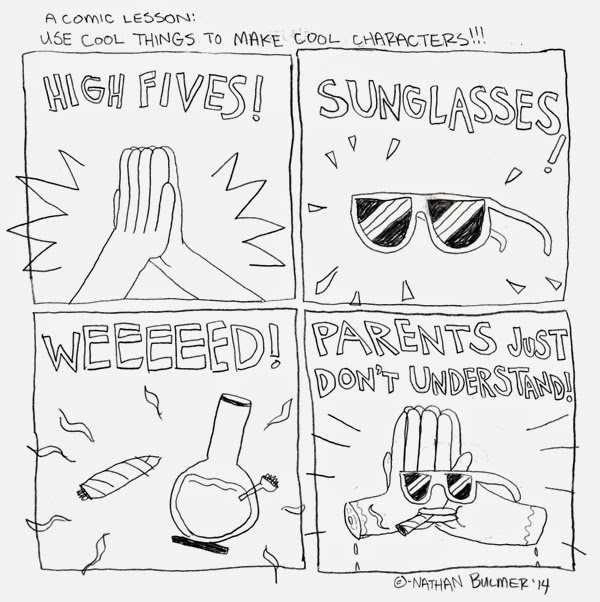 A COMIC LESSON:
USE COOL THINGS TO MAKE COOL CHARACTERS!!!
HIGH FIVES!
SUNGLASSES!
WEEEEEED!
PARENTS JUST
DON'T UNDERSTAND!
©-NATHAN BULMER '14